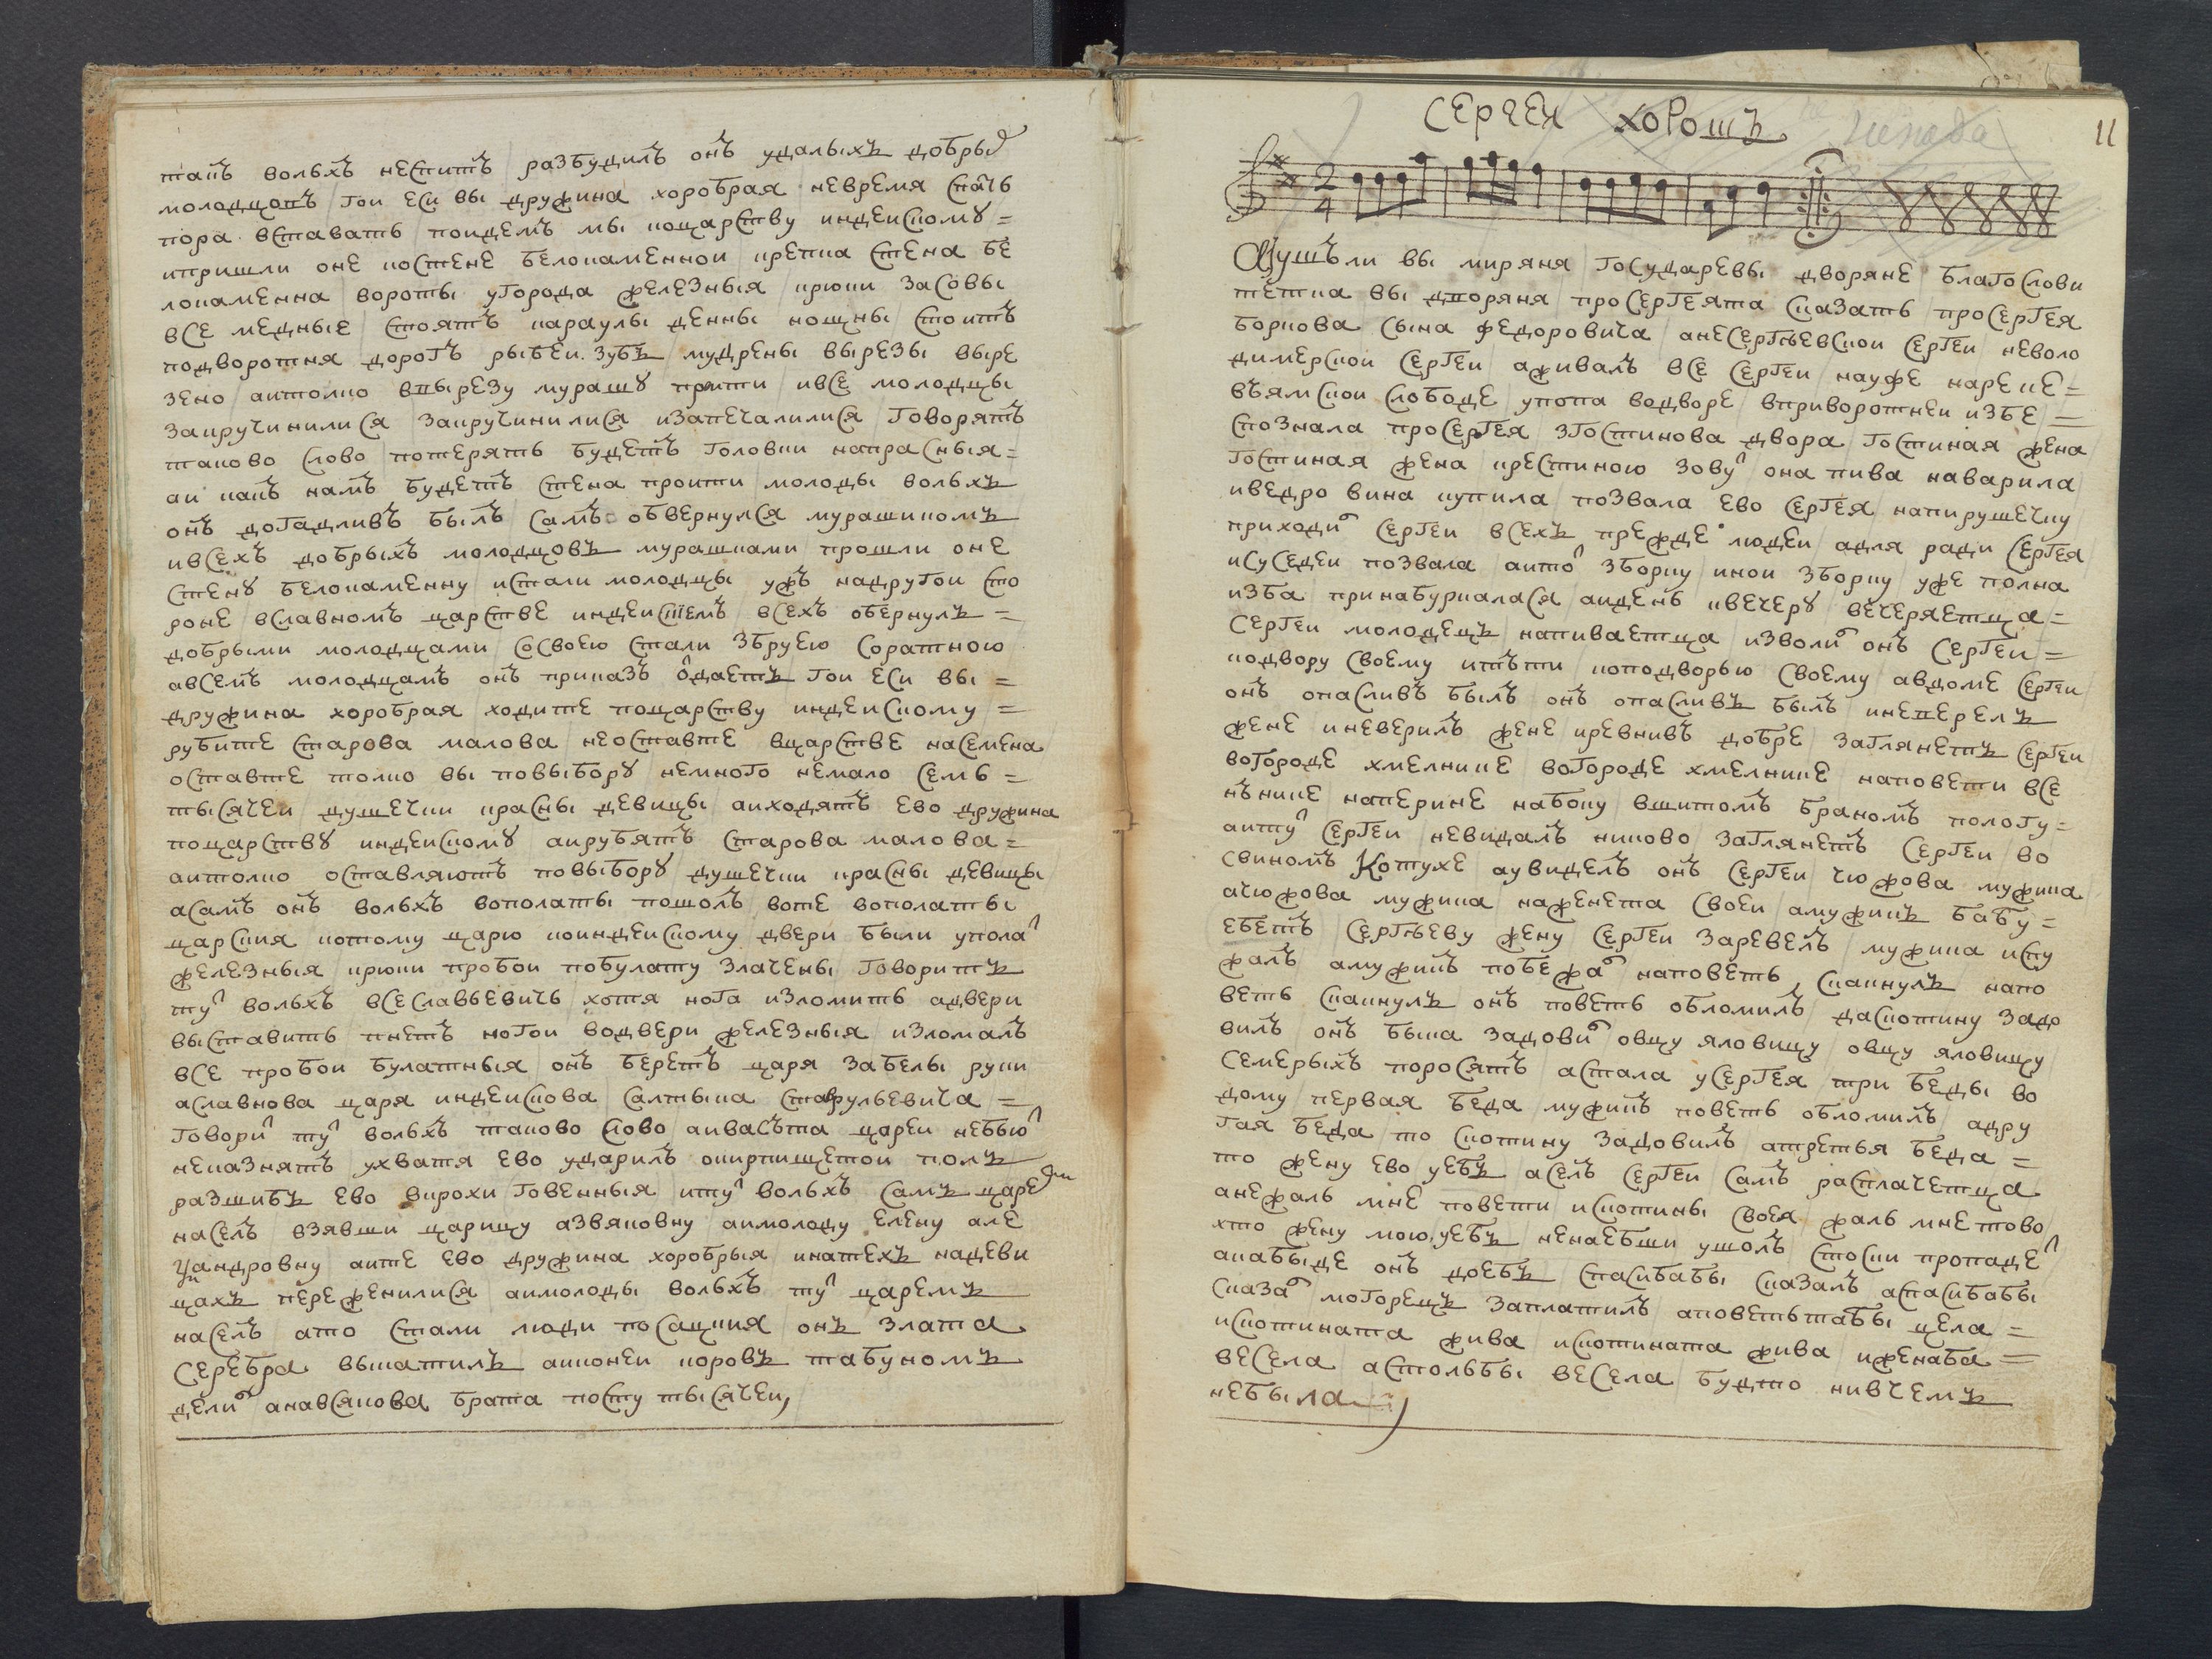 такъ вольхъ неспитъ разбудилъ онъ удалыхъ добры
молодцовъ гои еси вы дружина хоробрая невремя спать
пора вставать поидемъ мы кцарству индеискому =
ипришли оне костене белокаменнои крепка стена бе
локаменна вороты угорода железныя крюки засовы
все медные стоятъ караулы денны нощны стоитъ
подворотня дорогъ рыбеи зубъ мудрены вырезы выре
зено аитолко ввырезу мурашу проити ивсе молодцы
закручинилися закручинилися изапечалилися говорятъ
таково слово потерять будетъ головки напрасныя =
аи какъ намъ будетъ стена проити молоды вольхъ
онъ догадливъ былъ самъ обвернулся мурашикомъ
ивсехъ добрыхъ молодцовъ мурашками прошли оне
стену белокаменну истали молодцы ужъ надругои сто
роне вславномъ царстве индеискемъ всехъ обернулъ =
добрыми молодцами сосвоею стали збруею соратною
авсемъ молодцамъ онъ приказъ одаетъ гои еси вы =
дружина хоробрая ходите поцарству индеискому =
рубите старова малова неоставте вцарстве насемена
оставте толко вы повыбору немного немало семь =
тысячеи душечки красны девицы аиходятъ ево дружина
поцарству индеискому аирубятъ старова малова =
аитолко оставляютъ повыбору душечки красны девицы
асамъ онъ вольхъ вополаты пошолъ воте вополаты
царския ктому царю коиндеискому двери были упола
железныя крюки пробои побулату злачены говоритъ
ту вольхъ всеславьевичь хотя нога изломить адвери
выставить пнетъ ногои водвери железныя изломалъ
все пробои булатныя онъ беретъ царя забелы руки
аславнова царя индеискова салтыка ставрульевича =
говори ту вольхъ таково слово аивасъта цареи небью
неказнятъ ухватя ево ударилъ окирпищетои полъ
разшибъ ево вкрохи говенныя иту вольхъ самъ царе
населъ взявши царицу азвяковну аимолоду елену але
ксандровну аите ево дружина хоробрыя инатехъ надеви
цахъ переженилися аимолоды вольхъ ту царемъ
населъ ато стали люди посацкия онъ злата
серебра выкатилъ аиконеи коровъ табуномъ
дели анавсякова брата посту тысячеи
11
Сергеи хорошъ
2
4
Слушъли вы миряня государевы дворяне благослови
тетка вы дворяня просергеята сказать просергея
боркова сына федоровича анесергѣевскои сергеи неволо
димерскои сергеи аживалъ все сергеи науфе нареке =
въямскои слободе упопа водворе вприворотнеи избе =
спознала просергея згостинова двора гостиная жена
гостиная жена крестиною зову она пива наварила
иведро вина купила позвала ево сергея напирушечку
приходи сергеи всехъ прежде людеи адля ради сергея
исуседеи позвала аито зборну инои зборну уже полна
изба принабуркалася аидень квечеру вечеряетца =
сергеи молодецъ напиваетца изволи онъ сергеи =
кодвору своему итъти котодворью своему авдоме сергеи
онъ опасливъ былъ онъ опасливъ былъ иневерелъ
жене иневерилъ жене иревнивъ добре заглянетъ сергеи
вогороде хмелнике вогороде хмелнике наповети все
нънике наперине набоку вшитомъ браномъ пологу =
аиту сергеи невидалъ никово заглянетъ сергеи во
свиномъ котухе аувиделъ онъ сергеи чюжова мужика
ачюжова мужика наженета своеи амужикъ бабу =
ебетъ сергѣеву жену сергеи заревелъ мужика испу
жалъ амужикъ побежа наповеть скакнулъ напо
веть скакнулъ онъ поветь обломилъ даскотину задо
вилъ онъ быка задови овцу яловицу овцу яловицу
семерыхъ поросятъ астала усергея три беды во
дому первая беда мужикъ поветь обломилъ адру
гая беда то скотину задовилъ атретья беда =
то жену ево уебъ аселъ сергеи самъ расплачетца
анежаль мне повети искотины своея жаль мне тово
хто жену мою уебъ ненаебши ушолъ стоски пропаде
акабыде онъ доебъ спасибабы сказалъ аспасибабы
сказа могорецъ заплатилъ аповетьтабы цела =
искотината жива искотината жива иженаба =
весела астольбы весела будто нивчемъ
небыла